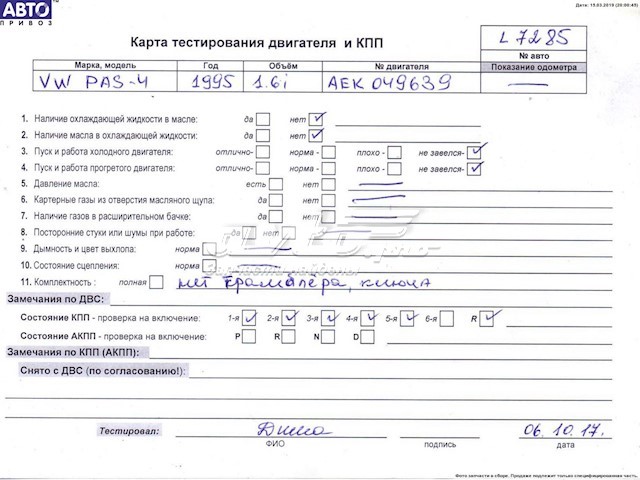 Дата: 15.03.2019 (20:00:45)
АВТО
ПРИВОЗ
Карта тестирования двигателя и КПП
L 7285
№ авто
Марка, модель Год Объём № двигателя Показание одометра
VW PAS-4 1995 1.6i AEK 049639 —
1. Наличие охлаждающей жидкости в масле: да нет ✓
2. Наличие масла в охлаждающей жидкости: да нет ✓
3. Пуск и работа холодного двигателя: отлично- норма - плохо - не завелся- ✓
4. Пуск и работа прогретого двигателя: отлично- норма - плохо - не завелся- ✓
5. Давление масла: есть нет —
6. Картерные газы из отверстия масляного щупа: да нет —
7. Наличие газов в расширительном бачке: да нет —
8. Посторонние стуки или шумы при работе: да нет
9. Дымность и цвет выхлопа: норма —
10. Состояние сцепления: норма —
11. Комплектность : полная нет трамблёра, ключа
Замечания по ДВС:
Состояние КПП - проверка на включение: 1-я ✓ 2-я ✓ 3-я ✓ 4-я ✓ 5-я ✓ 6-я R ✓
Состояние АКПП - проверка на включение: P R N D
Замечания по КПП (АКПП):
Снято с ДВС (по согласованию!):
Тестировал: Дима 06.10.17.
ФИО подпись дата
Фото запчасти в сборе. Продаже подлежит только специфицированная часть.